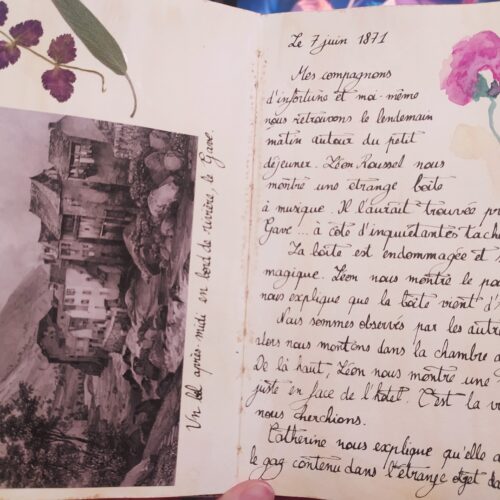 Un bel après-midi en bord de rivière, le Gave.
Le 7 juin 1871
Mes compagnons
d'infortune et moi-même
nous retrouvons le lendemain
matin autour du petit
déjeuner. Léon Roussel nous
montre une étrange boîte
à musique. Il l'aurait trouvée
Gave... à côté d'inquiétantes
La boîte est endommagée et
magique. Léon nous montre le
nous explique que la boîte vient
Nous sommes observés par les
alors nous montons dans la chambre
De là haut, Léon nous montre une
juste en face de l'hôtel. C'est la
nous cherchions.
Catherine nous explique qu'elle
le gaz contenu dans l'étrange